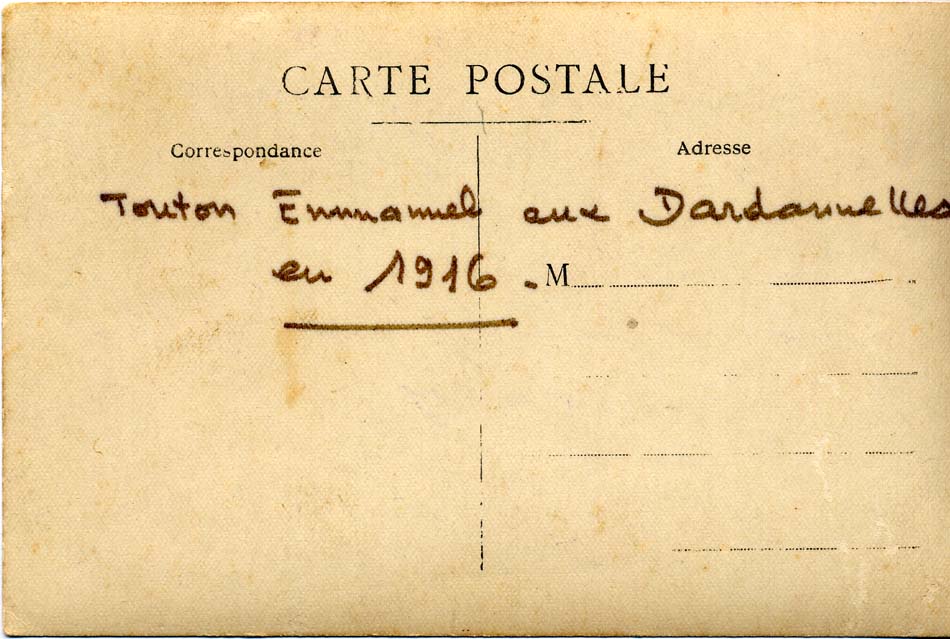 CARTE POSTALE
Correspondance
Adresse
Touton Emmanuel aux Dardannelles
en 1916.
M